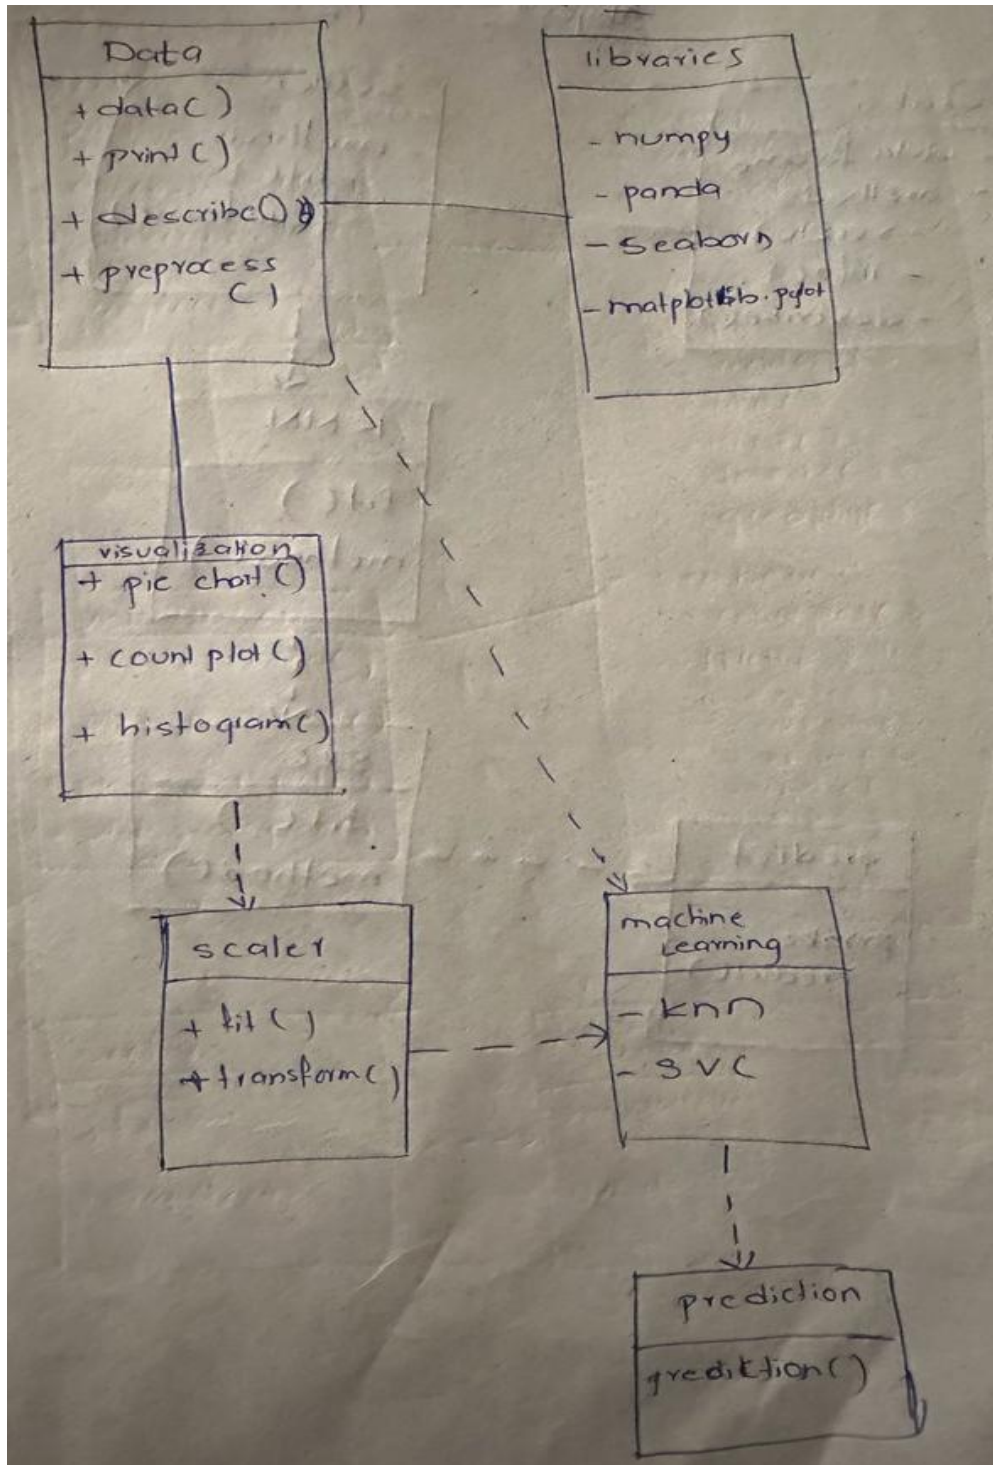 Data
+ data()
+ print()
+ describe()
+ preprocess
()
libraries
- numpy
- panda
- seaborn
- matplotlib.pyplot
visualization
+ pie chart()
+ count plot()
+ histogram()
scaler
+ fit()
+ transform()
machine
Learning
- knn
- SVC
prediction
prediktion()